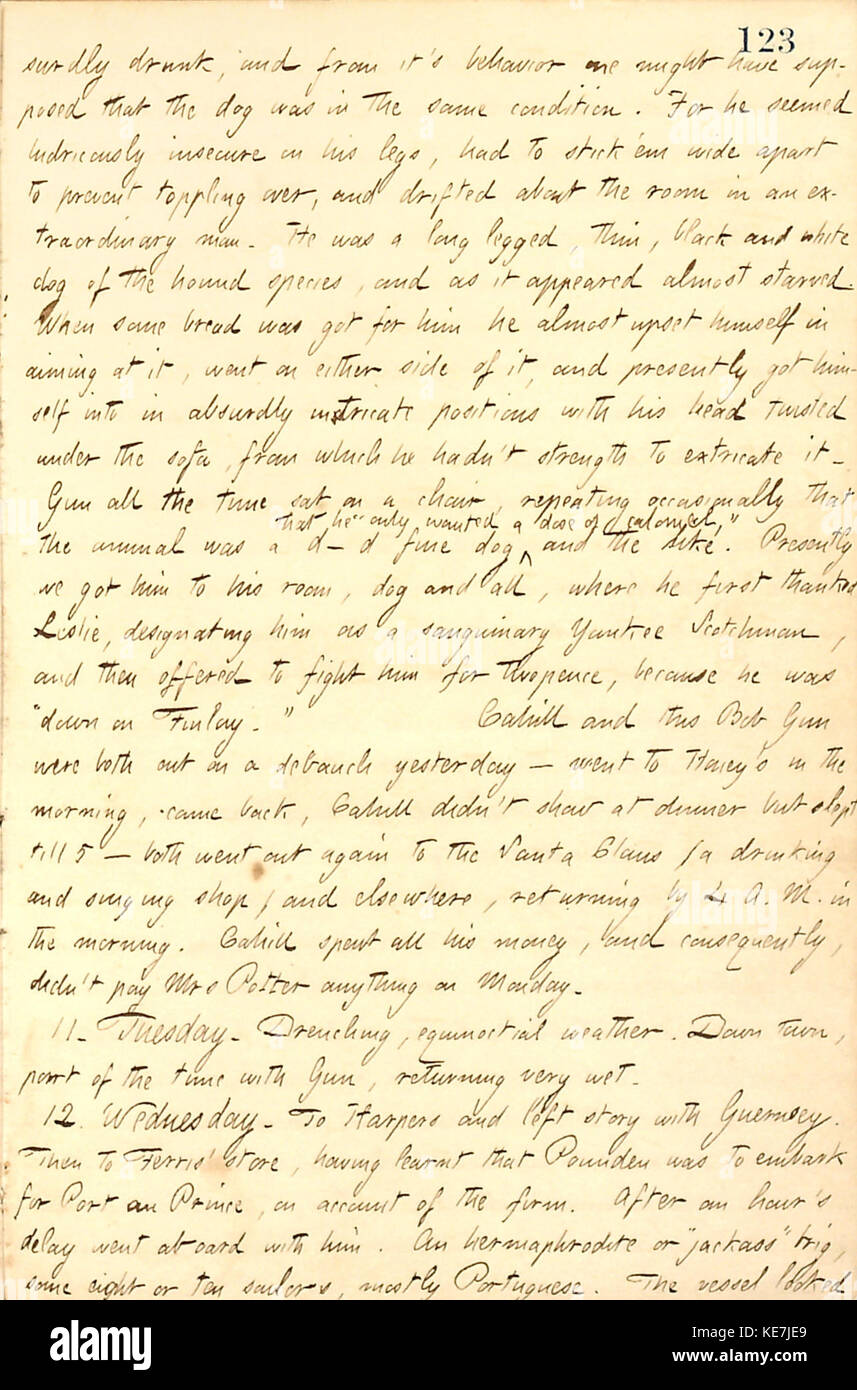 123
surdly drunk, and from it's behavior one might have sup-
posed that the dog was in the same condition. For he seemed
ludricously insecure on his legs, had to stick 'em wide apart
to prevent toppling over, and drifted about the room in an ex-
traordinary man- He was a long legged, thin, black and white
dog of the hound species, and as it appeared almost starved.
When some bread was got for him he almost upset himself in
aiming at it, went on either side of it, and presently got him-
self into in absurdly intricate positions with his head twisted
under the sofa, from which he hadn't strength to extricate it-
Gun all the time sat on a chair, repeating occasionally that
that he "only wanted a dose of calomel,"
the animal was a d—d fine dog ^ and the like. Presently
we got him to his room, dog and all, where he first thanked
Leslie, designating him as a sanguinary Yankee Scotchman,
and then offered to fight him for twopence, because he was
"down on Finlay." Cahill and this Bob Gun
were both out on a debauch yesterday — went to Honey's in the
morning, came back, Cahill didn't show at dinner but slept
till 5 — both went out again to the Santa Claus (a drinking
and singing shop) and elsewhere, returning by 4 A. M. in
the morning. Cahill spent all his money, and consequently,
didn't pay Mrs Potter anything on Monday-
11- Tuesday- Drenching, equinoctial weather. Down town,
part of the time with Gun, returning very wet-
12. Wednesday- To Harpers and left story with Guernsey.
Then to Ferris' store, having learnt that Pounden was to embark
for Port au Prince, on account of the firm. After an hour's
delay went aboard with him. An hermaphrodite or "jackass" brig,
some eight or ten sailors, mostly Portuguese. The vessel looked
alamy
Image ID: KE7JE9
www.alamy.com